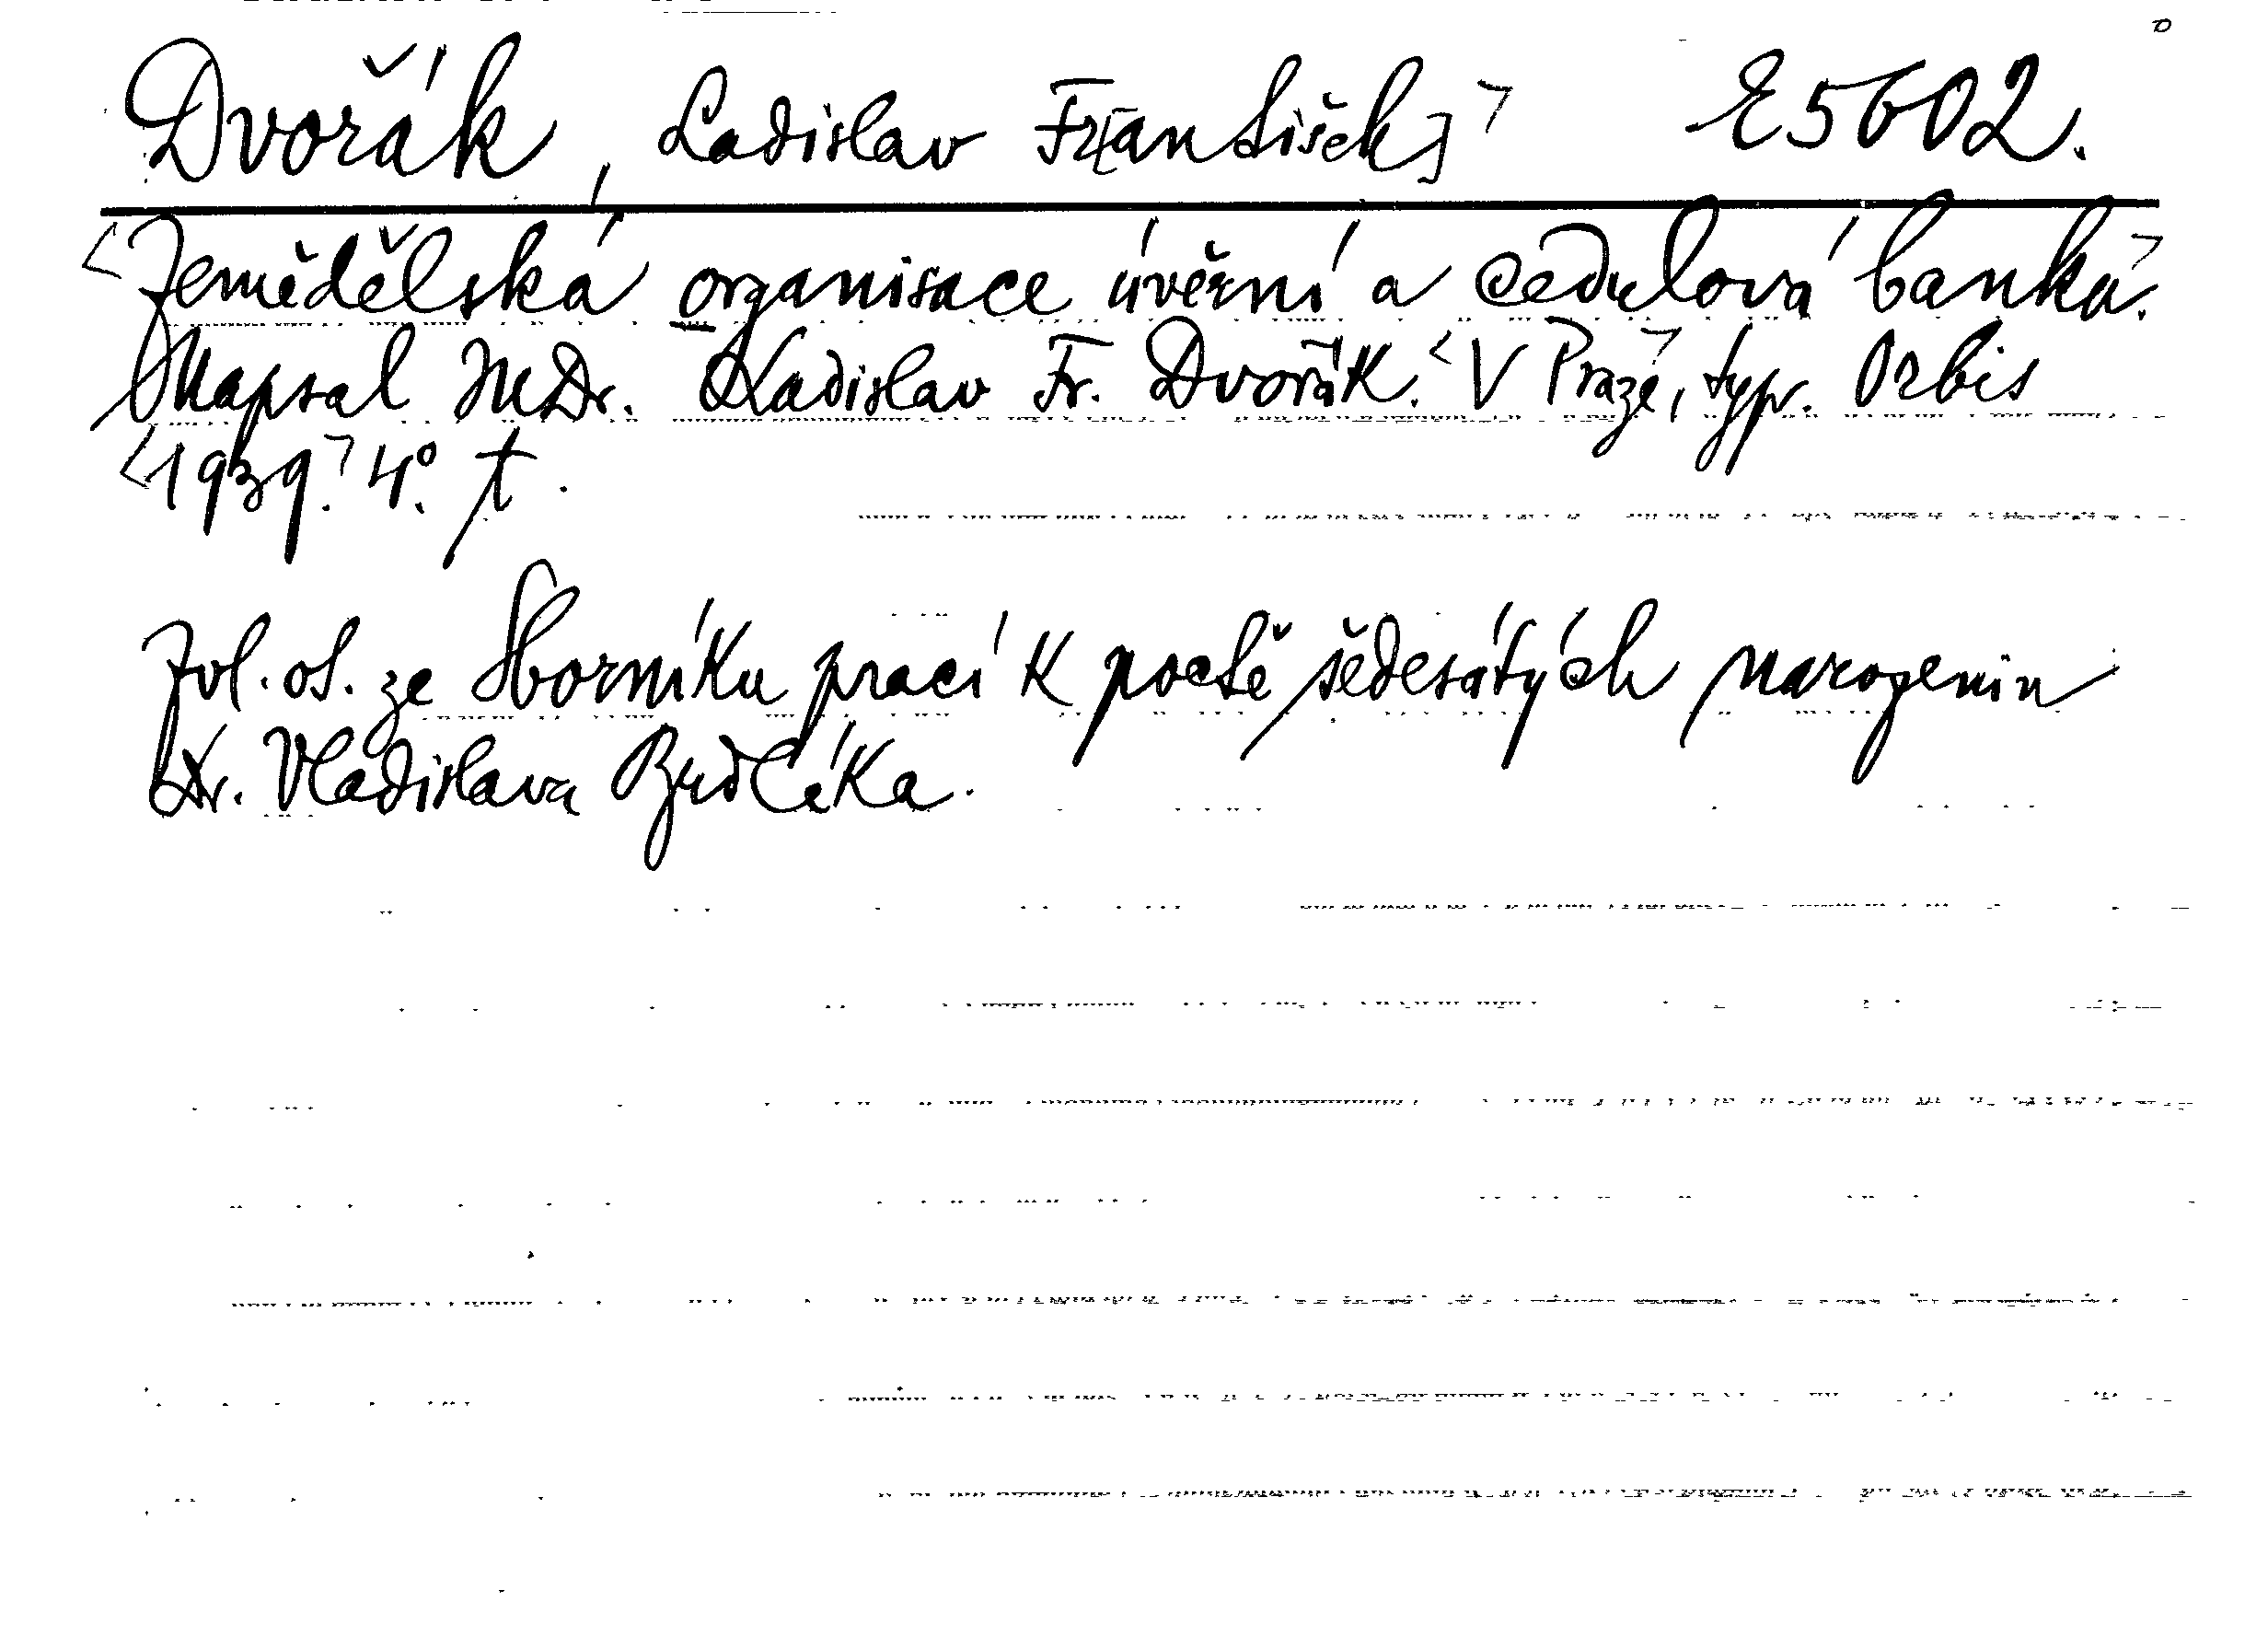 Dvořák, Ladislav Fr[antišek]⌝ E5602.
<Zemědělská organisace úvěrní a cedulová banka.⌝
Napsal JUDr. Ladislav Fr. Dvořák. <V Praze⌝, typ. Orbis
<1939.⌝ 4°.
Zvl. ot. ze Sborníku prací k poctě šedesátých narozenin
Dr. Vladislava Brdlíka.